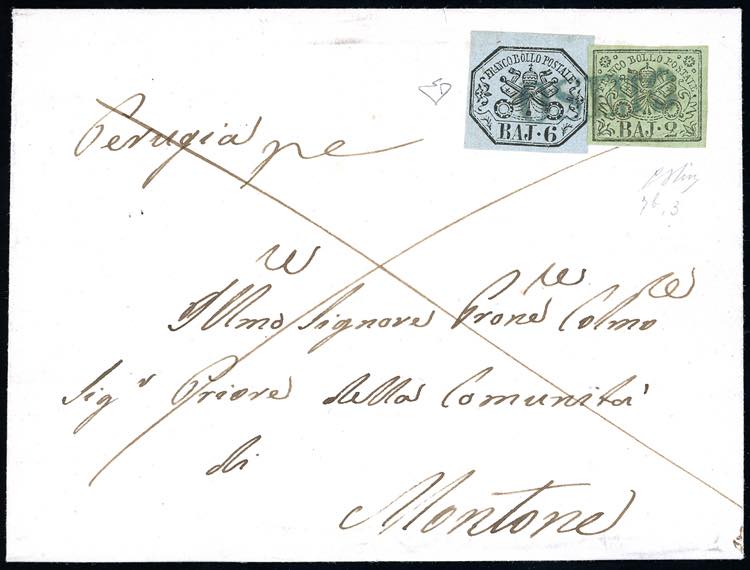 FRANCO BOLLO POSTALE
BAJ. 6
CO BOLLO POSTAL
BAJ. 2
Perugia pe
re re re
Illmo Signore Prone Colmo
Sigr Priore della Comunità
di
Montone